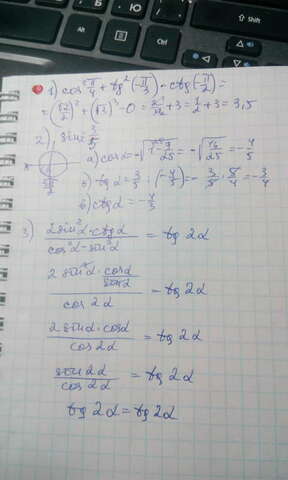 1) cos² π/4 + tg² (-π/3) - ctg (-π/2) =
= (√2/2)² + (√3)² - 0 = 2/4 + 3 = 1/2 + 3 = 3,5
2) sin α 3/5
а) cos α = -√(1 - 9/25) = -√(16/25) = -4/5
б) tg α = 3/5 : (-4/5) = - 3/5 · 5/4 = -3/4
в) ctg α = -4/3
3) (2 sin² α · ctg α)/(cos² α - sin² α) = tg 2α
(2 sin² α · cos α/sin α)/(cos 2α) = tg 2α
(2 sin α · cos α)/(cos 2α) = tg 2α
(sin 2α)/(cos 2α) = tg 2α
tg 2α = tg 2α